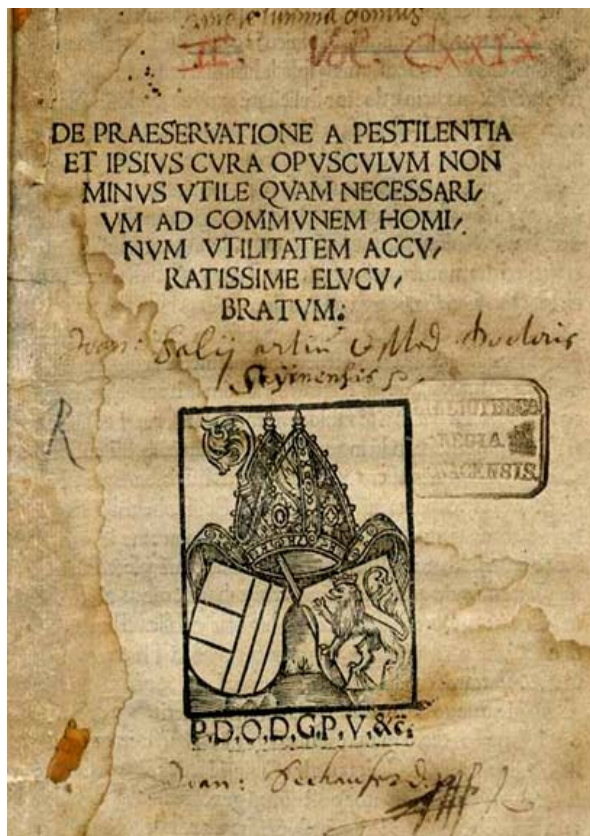 summa domus
II. Vol. CXXIX
DE PRAESERVATIONE A PESTILENTIA
ET IPSIVS CVRA OPVSCVLVM NON
MINVS VTILE QVAM NECESSARI/
VM AD COMMVNEM HOMI/
NVM VTILITATEM ACCV/
RATISSIME ELVCV/
BRATVM:
Joan: Salij artiū & Med Doctoris
R
BIBLIOTHECA
REGIA
MONACENSIS.
P.D.O.D.G.P.V.&c̄.
Joan: